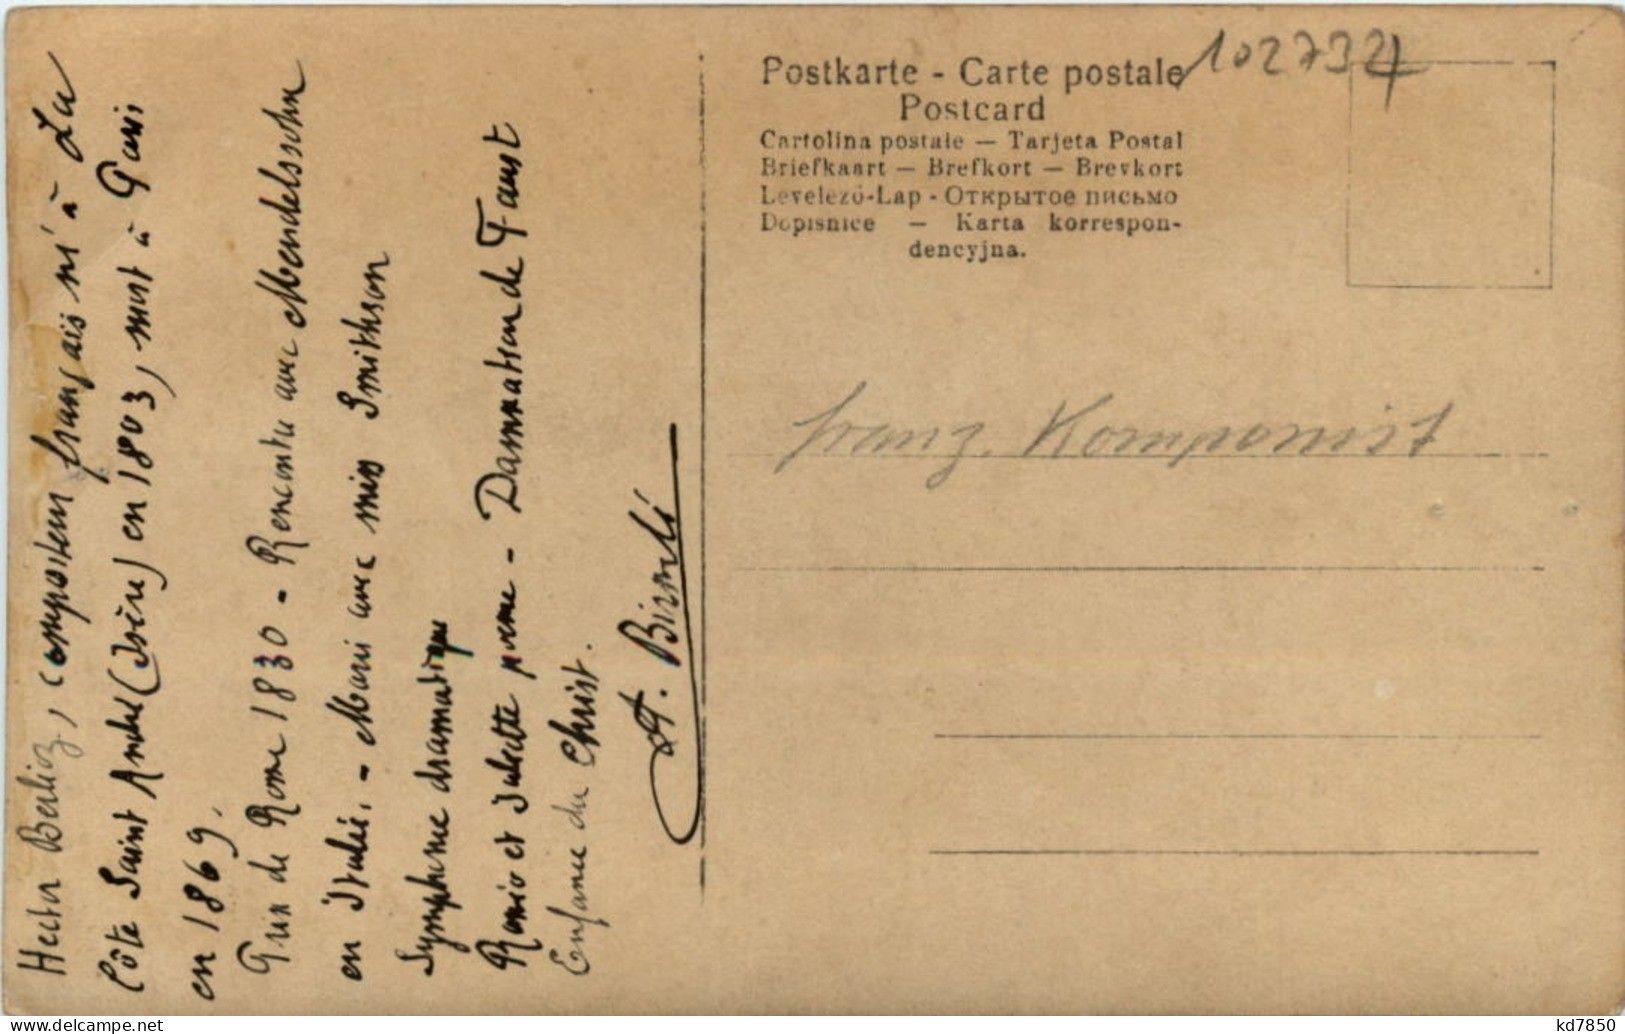 Hector Berlioz, compositeur français né à La
Côte Saint André (Isère) en 1803, mort à Paris
en 1869.
Prix de Rome 1830 - Rencontre avec Mendelssohn
en Italie. - Marié avec miss Smithson
Symphonie dramatique
Roméo et Juliette poème - Damnation de Faust
Enfance du Christ.
Postkarte - Carte postale
Postcard
Cartolina postale — Tarjeta Postal
Briefkaart — Brefkort — Brevkort
Levelező-Lap - Открытое письмо
Dopisnice — Karta korrespon-
dencyjna.
franz. Komponist
delcampe.net
kd7850